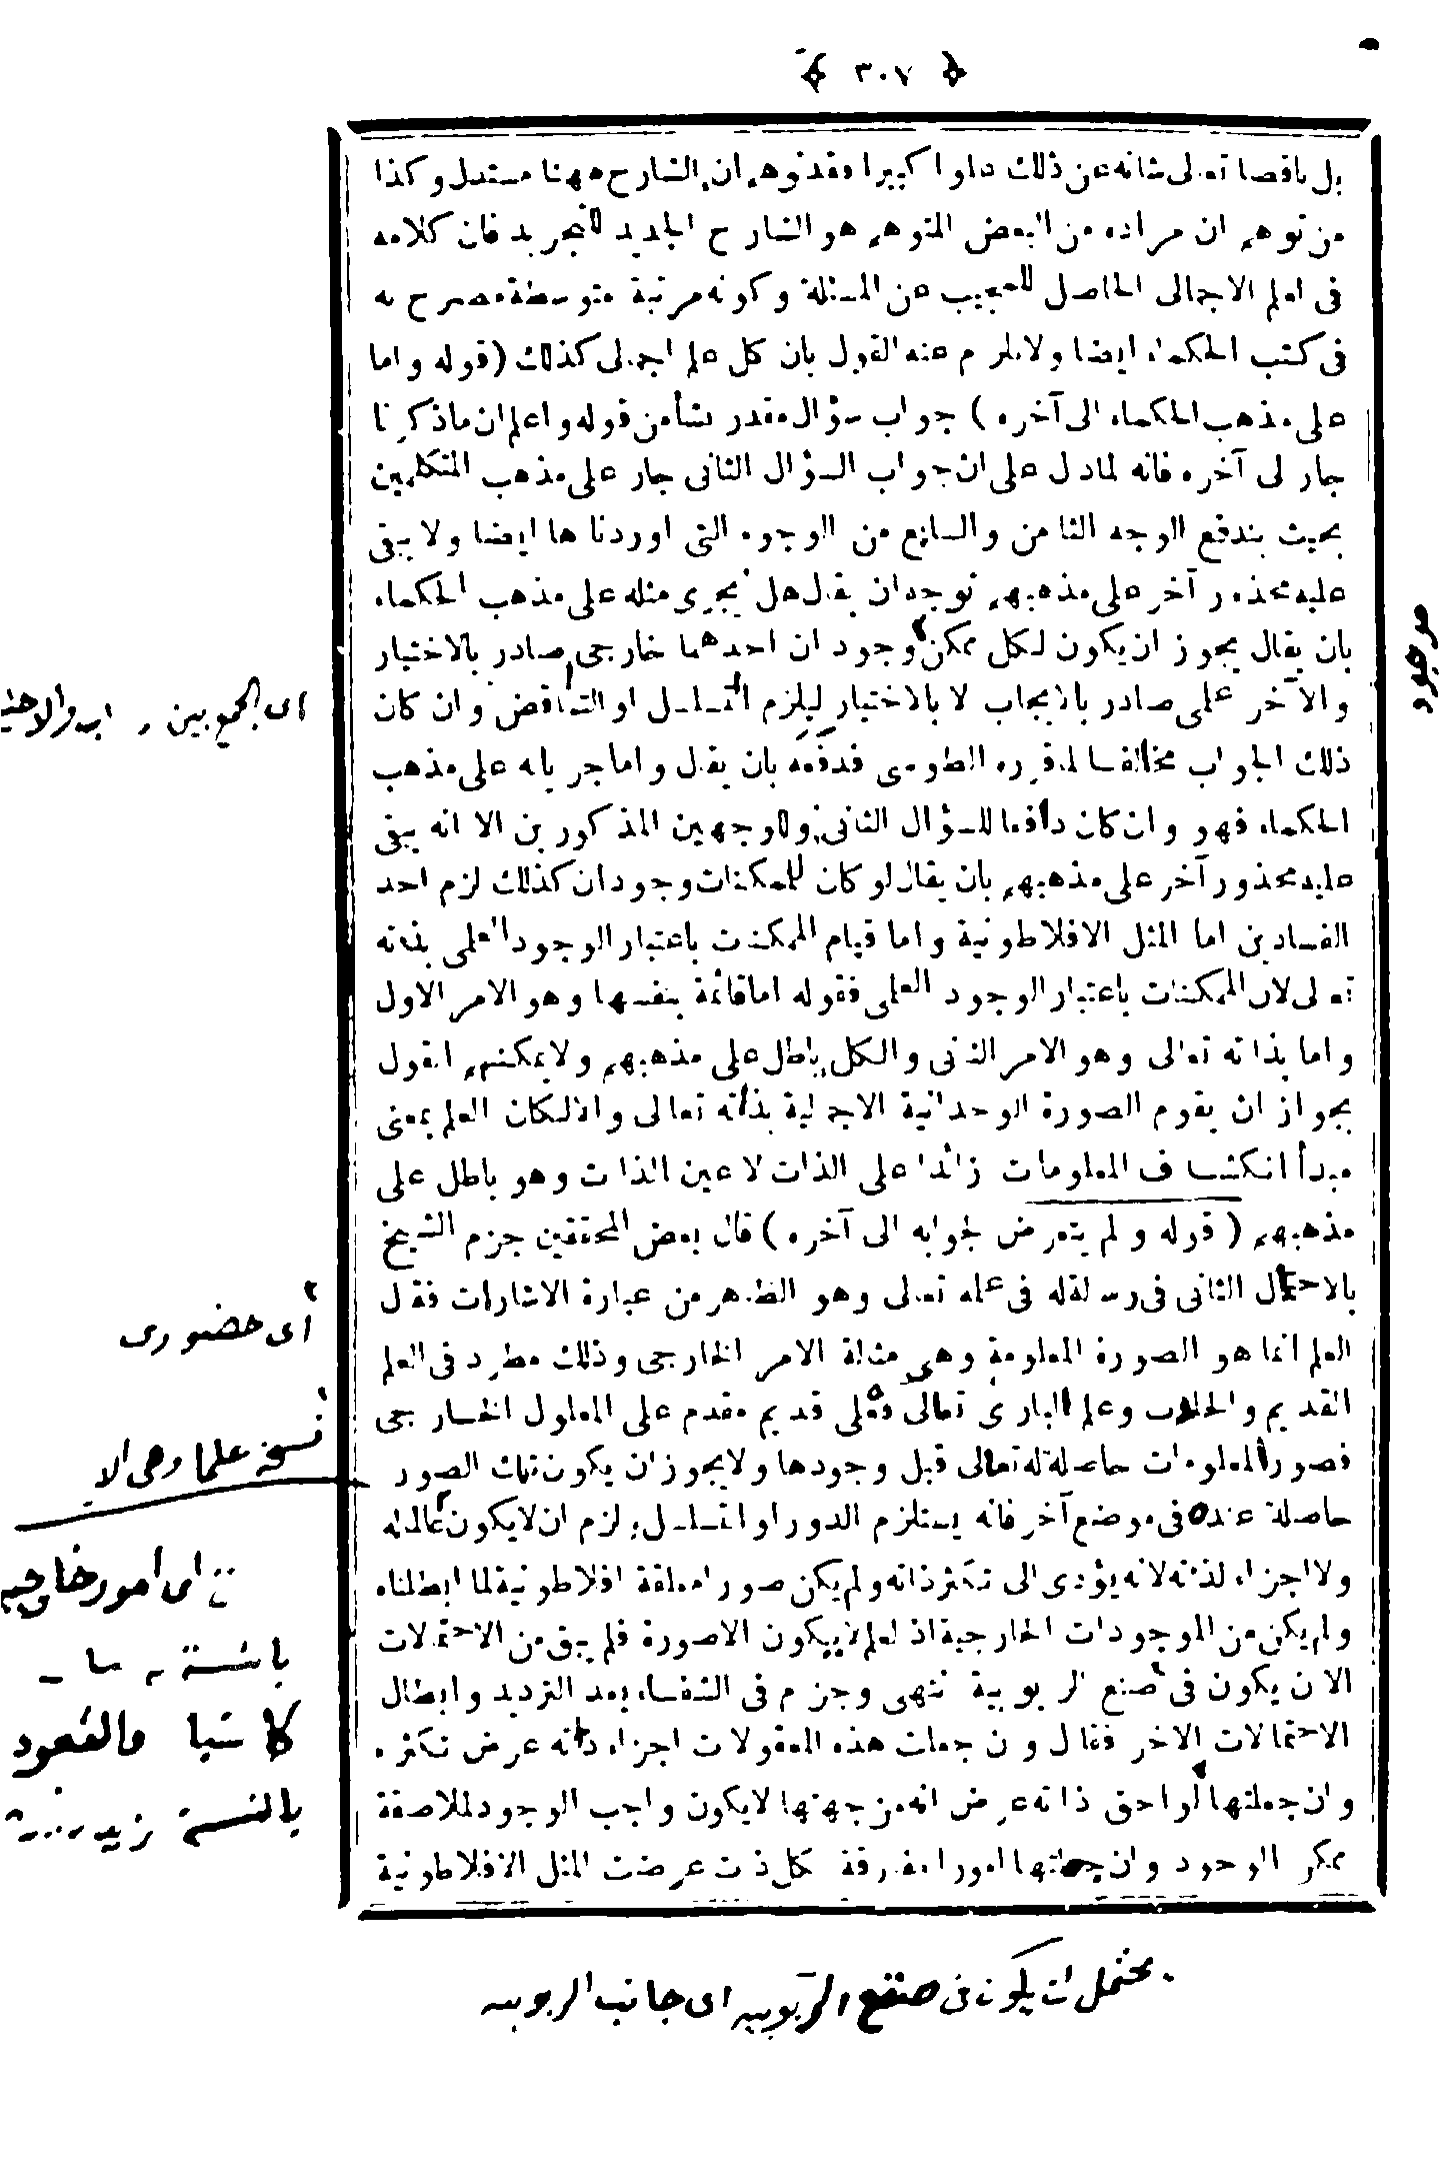 ﴿ ٣٠٧ ﴾
بل ناقصا تعالى شانه عن ذلك علوا كبيرا فقد توهم ان الشارح ههنا مستدل وكذا
من توهم ان مراده من البعض المتوهم هو الشارح الجديد للتجريد فان كلامه
فى العلم الاجمالى الحاصل للمجيب عن المسئلة وكونه مرتبة متوسطة مصرح به
فى كتب الحكماء ايضا ولا يلزم عنه القول بان كل علم اجمالى كذلك (قوله واما
على مذهب الحكماء الى آخره) جواب سؤال مقدر نشأ من قوله واعلم ان ماذكرنا
جار الى آخره فانه لما دل على ان جواب السؤال الثانى جار على مذهب المتكلمين
بحيث يندفع الوجه الثامن والسابع من الوجوه التى اوردناها ايضا ولا يبقى
عليه محذور آخر على مذهبهم توجه ان يقال هل يجرى مثله على مذهب الحكماء
بان يقال يجوز ان يكون لكل ممكن وجودان احدهما خارجى صادر بالاختيار
والآخر علمى صادر بالايجاب لا بالاختيار ليلزم التسلسل او التناقض وان كان
ذلك الجواب مخالفا لما قرره الطوسى فدفعه بان يقال واما جريانه على مذهب
الحكماء فهو وان كان دافعا للسؤال الثانى وللوجهين المذكورين الا انه يبقى
عليه محذور آخر على مذهبهم بان يقال لو كان للممكنات وجودان كذلك لزم احد
الفسادين اما المثل الافلاطونية واما قيام الممكنات باعتبار الوجود العلمى بذاته
تعالى لان الممكنات باعتبار الوجود العلمى فقوله اما قائمة بنفسها وهو الامر الاول
واما بذاته تعالى وهو الامر الثانى والكل باطل على مذهبهم ولا يمكنهم القول
بجواز ان يقوم الصورة الوحدانية الاجمالية بذاته تعالى والا لكان العلم بمعنى
مبدأ انكشاف المعلومات زائدا على الذات لا عين الذات وهو باطل على
مذهبهم (قوله ولم يتعرض لجوابه الى آخره) قال بعض المحققين جزم الشيخ
بالاحتمال الثانى فى رسالة له فى علمه تعالى وهو الظاهر من عبارة الاشارات فقال
العلم انما هو الصورة المعلومة وهى مثالة الامر الخارجى وذلك مطرد فى العلم
القديم والحادث وعلم البارئ تعالى فعلى قديم مقدم على المعلول الخارجى
فصور المعلومات حاصلة له تعالى قبل وجودها ولا يجوز ان يكون تلك الصور
حاصلة عنده فى موضع آخر فانه يستلزم الدور او التسلسل ولزم ان لا يكون عالما به
ولا اجزاء لذاته لانه يؤدى الى تكثر ذاته ولم يكن صورا معلقة افلاطونية لما ابطلناه
ولم يكن من الموجودات الخارجية اذ العلم لا يكون الا صورة فلم يبق من الاحتمالات
الا ان يكون فى صقع الربوبية انتهى وجزم فى الشفاء بعد الترديد وابطال
الاحتمالات الاخر فقال وان جعلت هذه المعقولات اجزاء ذاته عرض تكثره
وان جعلتها لواحق ذاته عرض انه من جهتها لا يكون واجب الوجود لملاصقة
ممكن الوجود وان جعلتها امورا مفارقة لكل ذات عرضت المثل الافلاطونية
موجود
اى الجمع بين
اى حضورى
نسخه علما وهى الا
اى امور خارجيه
بالنسبة
والقعود
بالنسبة
يحتمل ان يكون فى صقع الربوبيه اى جانب الربوبيه